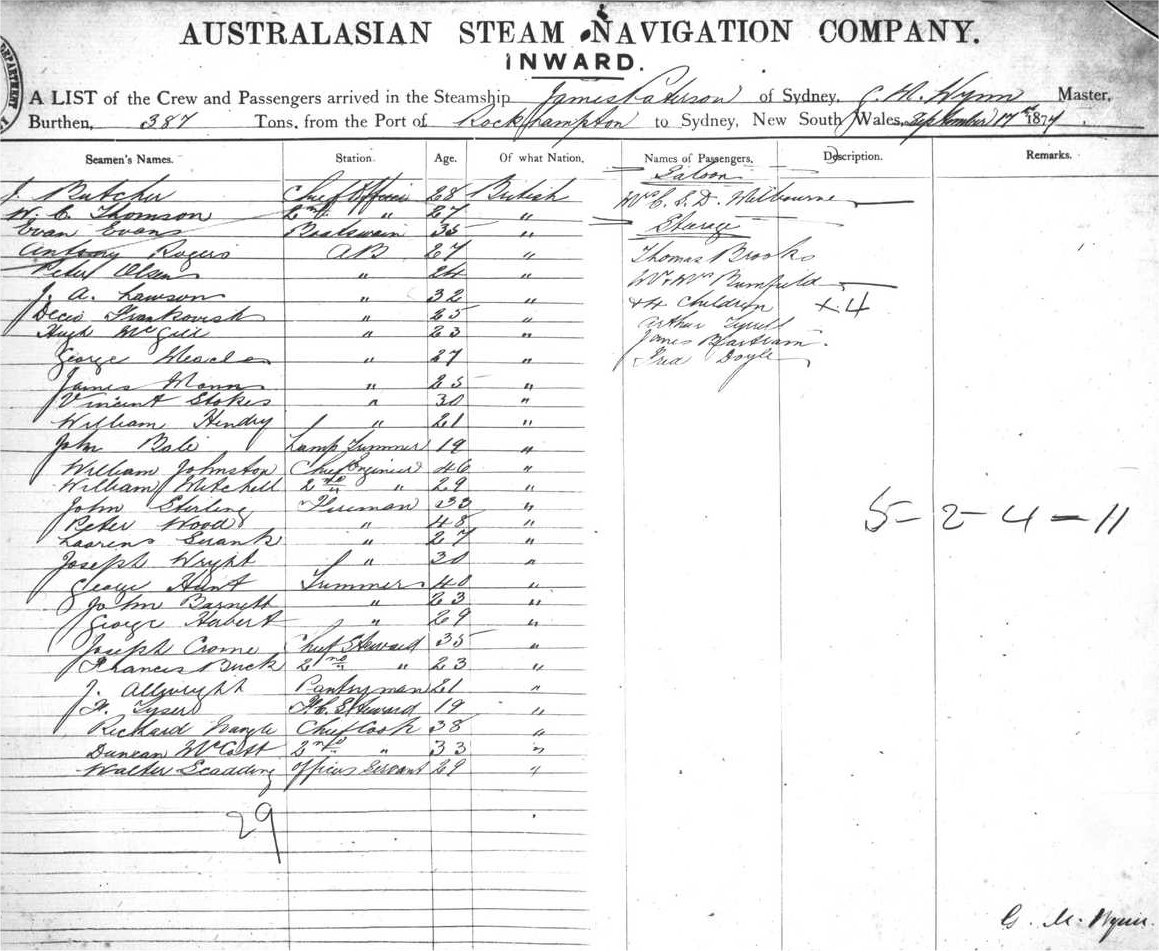 AUSTRALASIAN STEAM NAVIGATION COMPANY.
INWARD.
A LIST of the Crew and Passengers arrived in the Steamship James Paterson of Sydney, G. M. Wynn Master,
Burthen, 387 Tons, from the Port of Rockhampton to Sydney, New South Wales, September 17th 1877
Seamen's Names. Station. Age. Of what Nation. Names of Passengers. Description. Remarks.
Saloon
J. Butcher Chief Officer 28 British Mrs C. S. D. Wilbourne
W. C. Thomson 2nd " 27 "
Evan Evans Boatswain 35 " Steerage
Antony Rogers AB 27 " Thomas Brooks
Peter Olsen " 24 " Mr & Mrs Bumfield
J. A. Lawson " 32 " & 4 Children × 4
Decio Frankovish " 25 " Arthur Tyrrell
Hugh McGill " 23 " James Bartram.
George " 27 " Doyle
James Mann " 25 "
Vincent Stokes " 30 "
William Hendry " 21 "
John Bale Lamp Trimmer 19 "
William Johnston Chief Engineer 46 "
William Mitchell 2nd " 29 "
John Sterling Fireman 33 "
Peter Wood " 48 "
5 - 2 - 4 - 11
" 27 "
Joseph Wright " 30 "
George Hunt Trimmer 40 "
John Barnett " 23 "
George Herbert " 29 "
Joseph Crome Chief Steward 35 "
Francis Buck 2nd " 23 "
J. Allwright Pantryman 21 "
F. Tyser F.C. Steward 19 "
Richard Chief Cook 38 "
Duncan 2nd " 33 "
Walter Scadding Officers Servant 29 "
29
G. M. Wynn